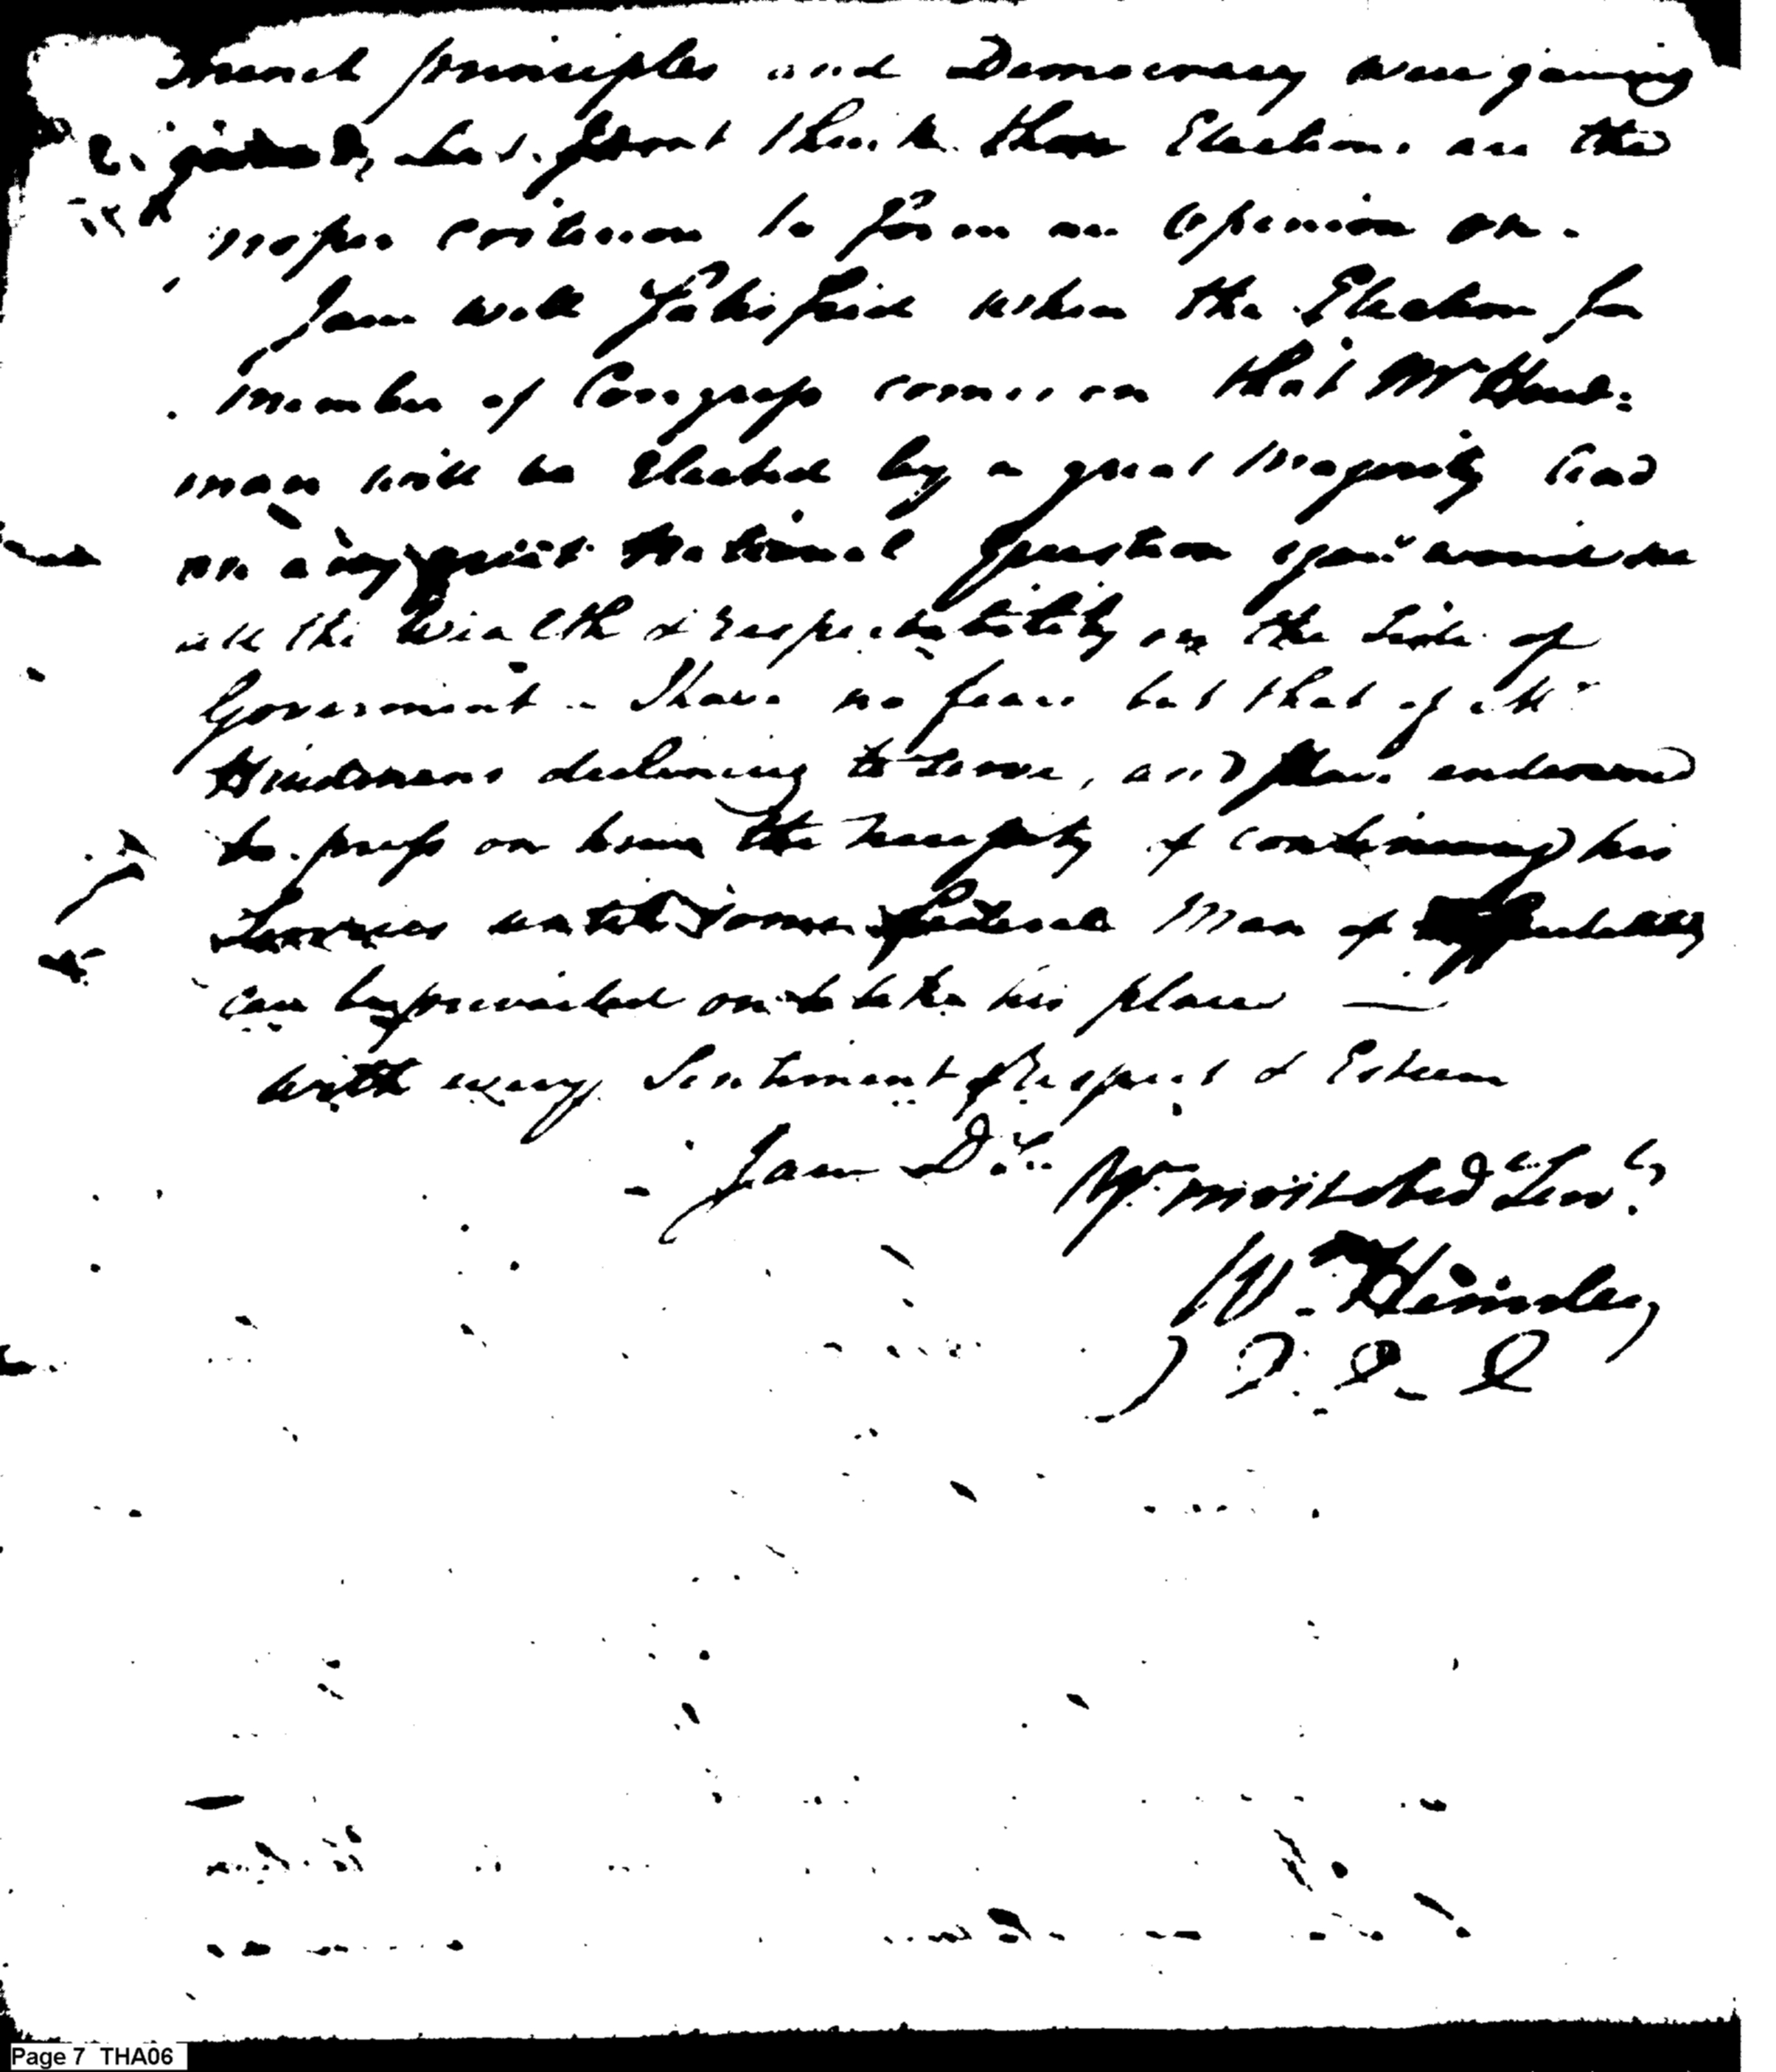 French principles and Democracy were gaining
ground, but I dont think those Elections are the
proper criterion to form an opinion on.
I am well Satisfied when the Election for
member of Congress comes on that Mr Hind=
man will be Elected by a great Majority and
on any great National Question you will see
all the Wealth & respectability on the side of
Government - I have no fears but that of Mr
Hindmans declining to serve, and have endeavored
to press on him the necessity of continuing his
Services until some federal Man of
can be prevailed on to take his place —
with every Sentiment of Respect & Esteem
I am Dr Sr Yr. most Obed Servt
W. Hemsley
Page 7 THA06